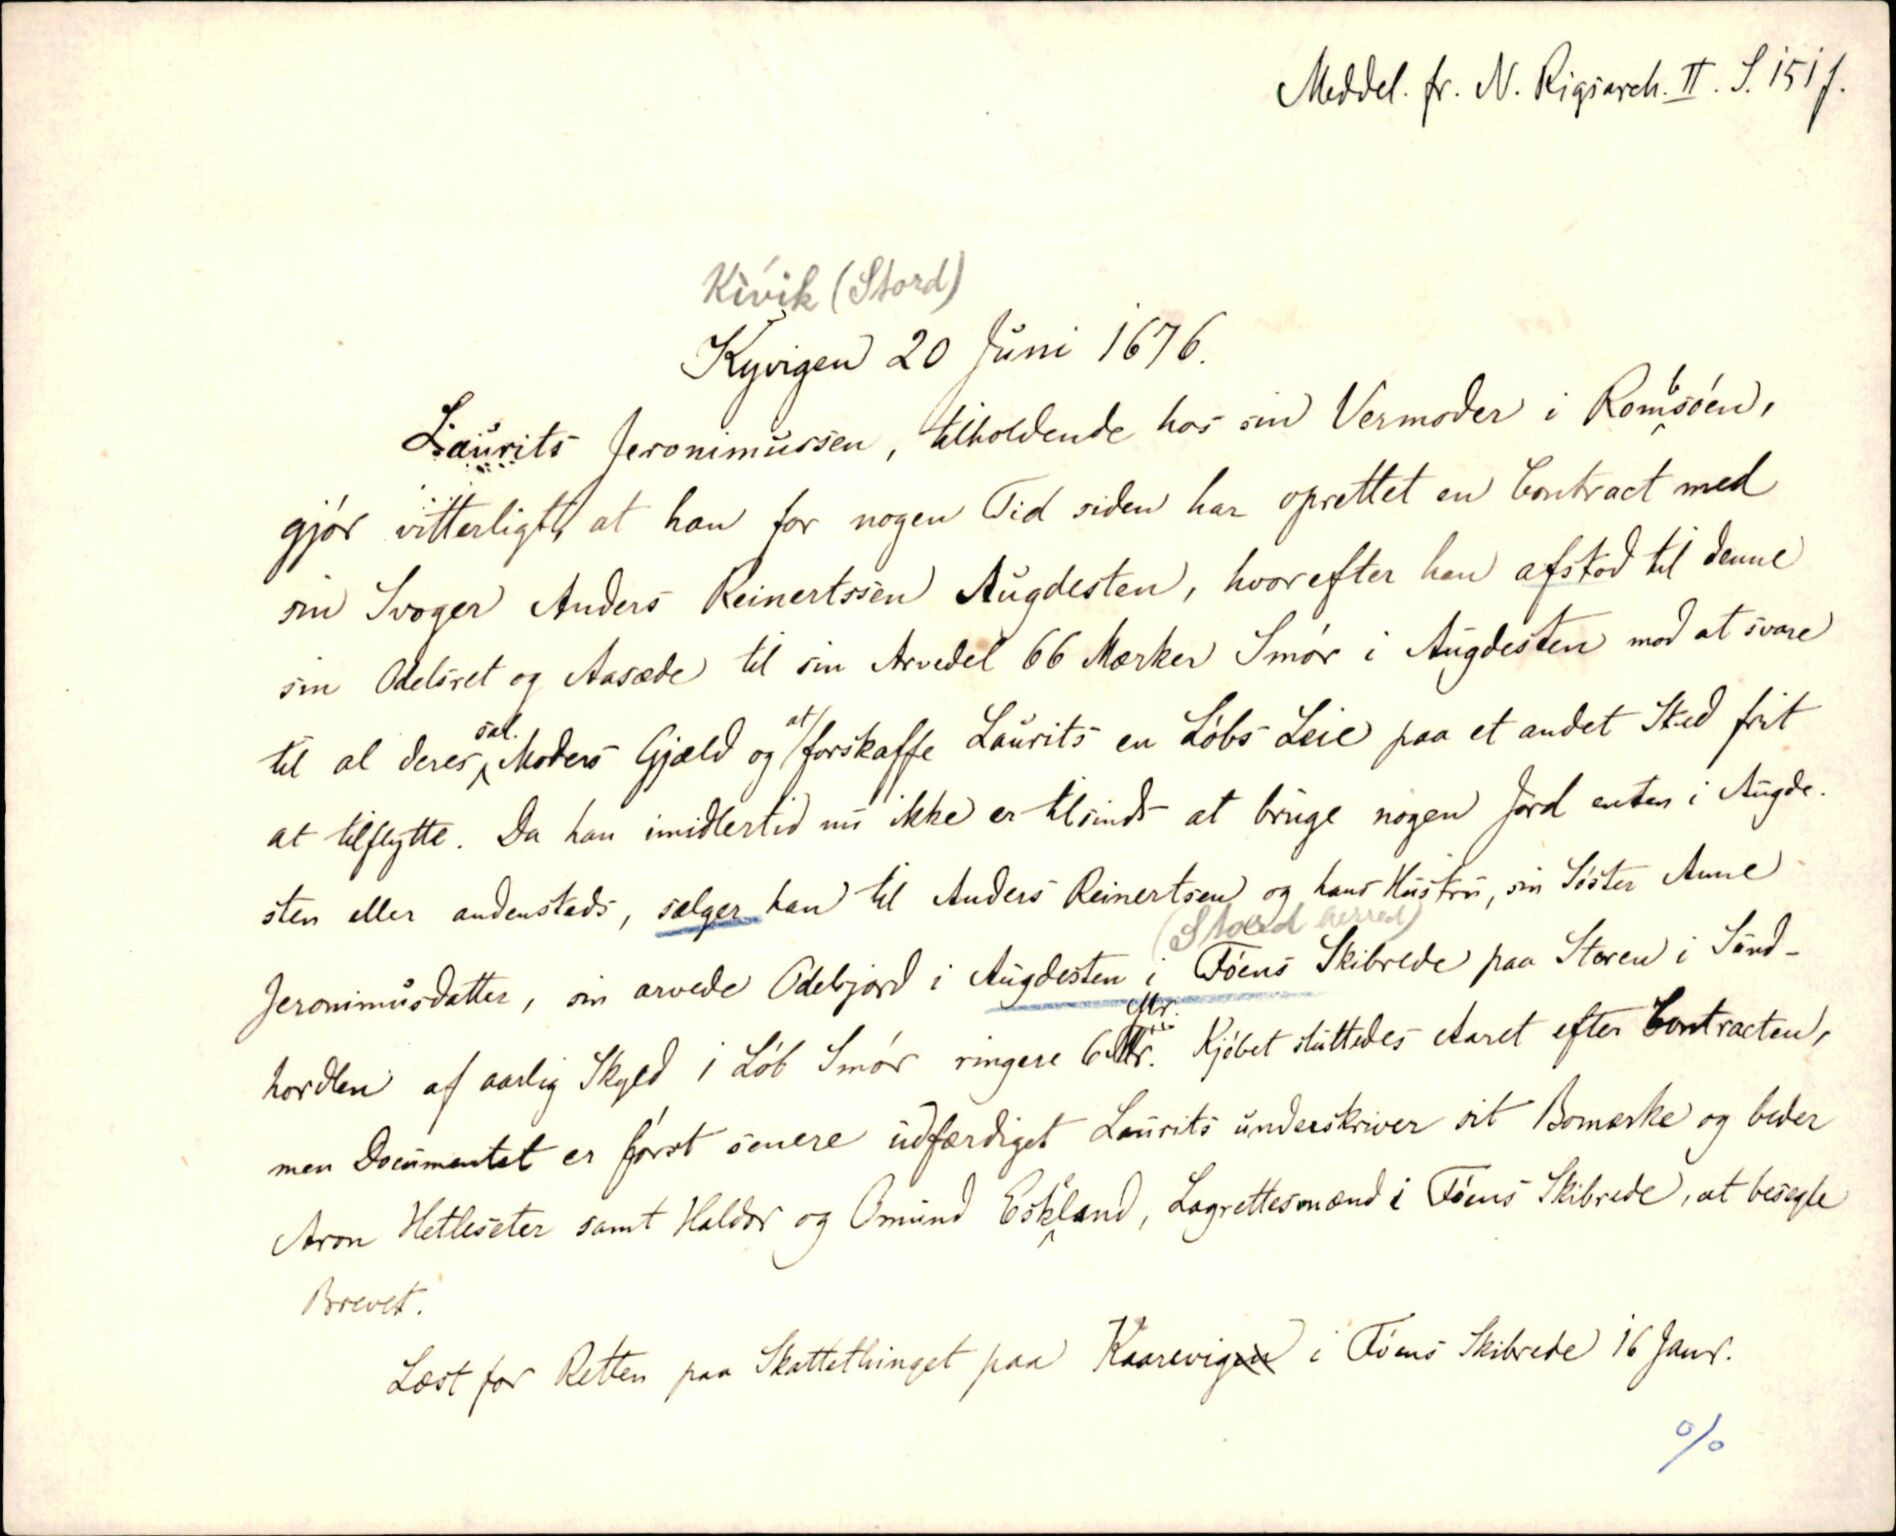 Meddel. fr. N. Rigsarch. II. S. 151 f.
Kivik (Stord)
Kyvigen 20 Juni 1676.
Laurits Jeronimussen, tilholdende hos sin Vermoder i Rombsøen,
gjør vitterligt, at han for nogen Tid siden har oprettet en Contract med
sin Svoger Anders Reinertssen Augdesten, hvorefter han afstod til denne
sin Odelsret og Aasæde til sin Arvedel 66 Mærker Smør i Augdesten mod at svare
til al deres sal. Moders Gjæld og at forskaffe Laurits en Løbs Leie paa et andet Sted frit
at tilflytte. Da han imidlertid nu ikke er tilsinds at bruge nogen Jord enten i Augde-
sten eller andensteds, sælger han til Anders Reinertsen og hans Hustru, sin Søster Anne
(Stord herred)
Jeronimusdatter, sin arvede Odelsjord i Augdesten i Føens Skibrede paa Storen i Sund-
hordlen af aarlig Skyld 1 Løb Smør ringere 6 Mr. Kjøbet sluttedes Aaret efter Contracten,
men Documentet er først senere udfærdiget Laurits underskriver sit Bomærke og beder
Aron Hetleseter samt Haldor og Omund Eskeland, Lagrettesmænd i Føens Skibrede, at besegle
Brevet.
Læst for Retten paa Skattethinget paa Kaarevigen i Føens Skibrede 16 Janr.
%